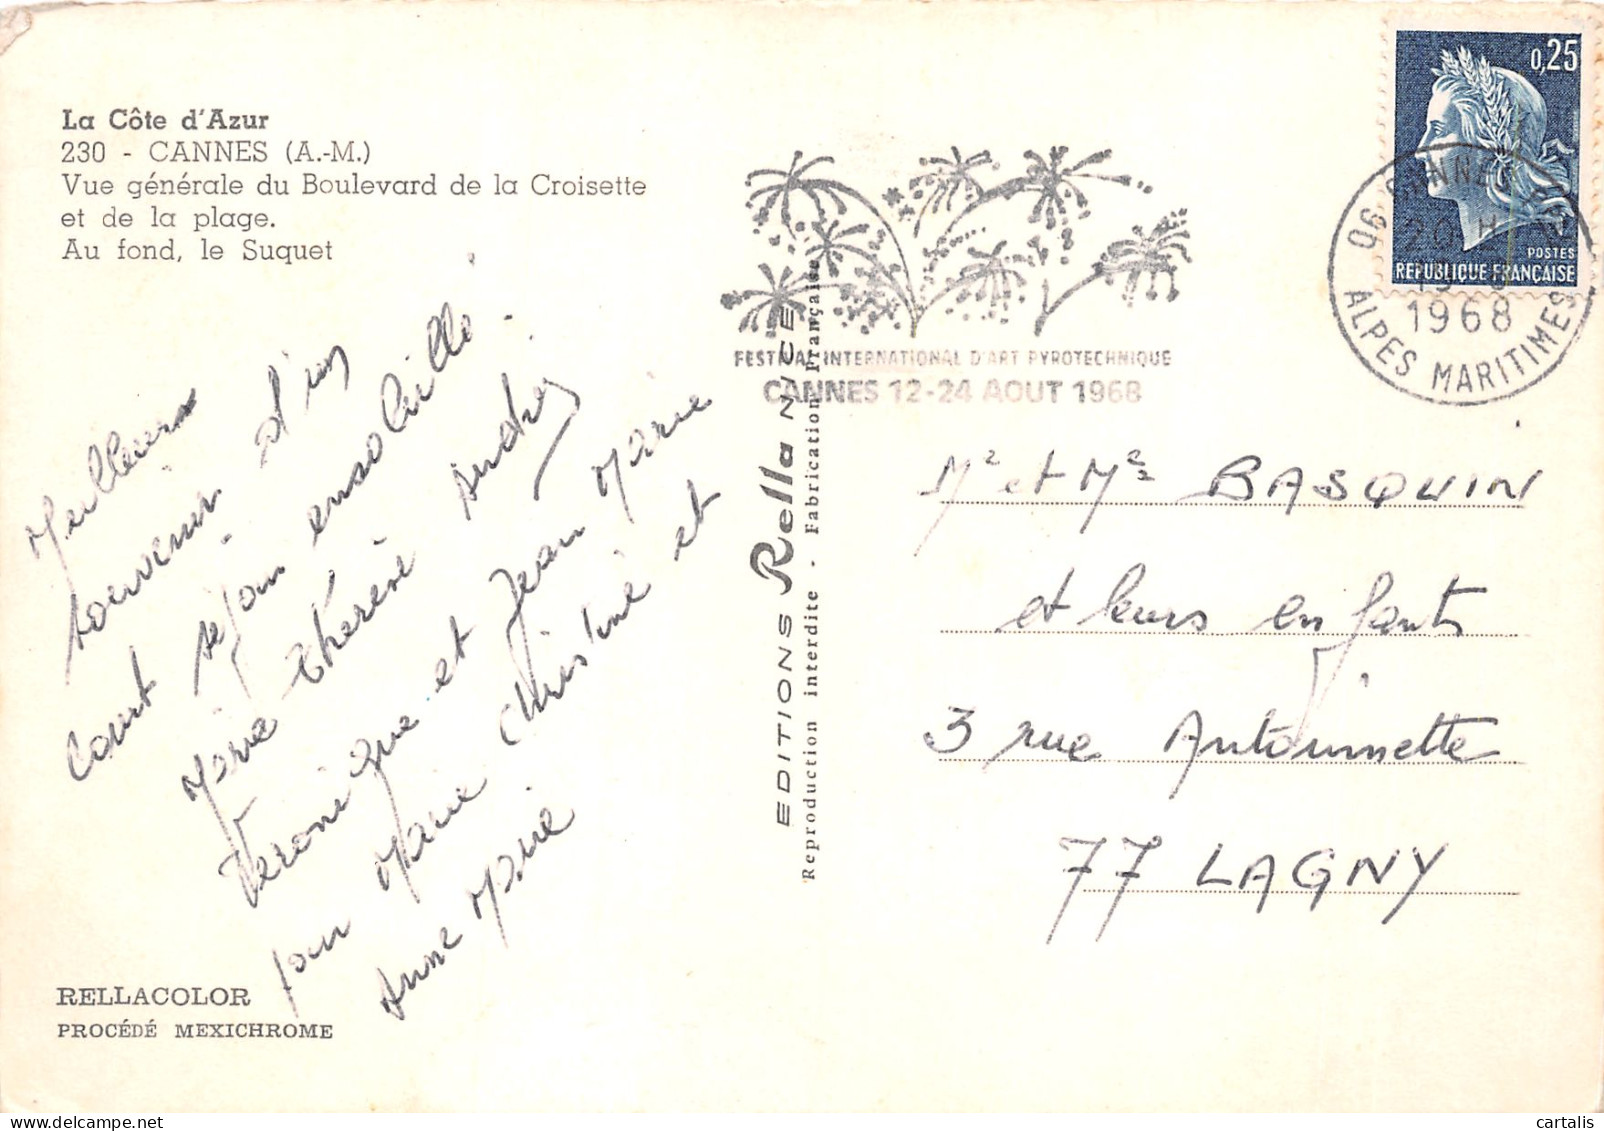 La Côte d'Azur
230 - CANNES (A.-M.)
Vue générale du Boulevard de la Croisette
et de la plage.
Au fond, le Suquet
Meilleurs
souvenirs d'un
court séjour ensoleillé.
Marie Thérèse Andrée
Véronique et Jean Marie
pour Marie Christine et
Anne Marie
RELLACOLOR
PROCÉDÉ MEXICHROME
EDITIONS Rella NICE
Reproduction interdite - Fabrication Française
FESTIVAL INTERNATIONAL D'ART PYROTECHNIQUE
CANNES 12-24 AOUT 1968
0,25
POSTES
REPUBLIQUE FRANÇAISE
06 CANNES
20 H
1968
ALPES MARITIMES
Mr et Mme BASQUIN
et leurs enfants
3 rue Antoinette
77 LAGNY
cartalis